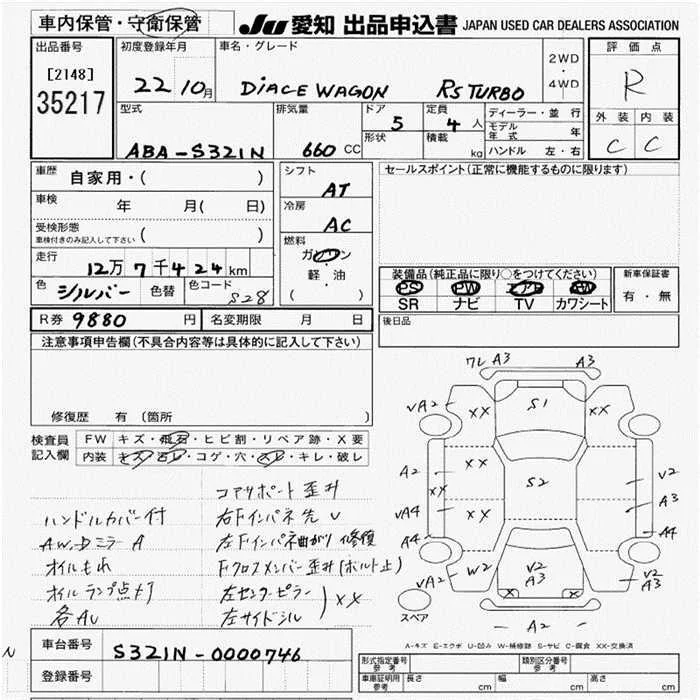 車内保管・守衛保管
JU 愛知 出品申込書 JAPAN USED CAR DEALERS ASSOCIATION
出品番号
[2148]
35217
初度登録年月
22 10月
車名・グレード
DIACE WAGON RS TURBO
2WD
・
4WD
評価点
R
外装 内装
C C
型式
ABA-S321N
排気量
660 CC
ドア
5
形状
定員
4 人
積載
kg
ディーラー・並行
モデル年式 年
ハンドル 左・右
車歴 自家用・( )
車検 年 月( 日)
受検形態
車検付きのみ記入して下さい ( )
走行
12万7千424km
色 シルバー 色替 色コード S28
シフト
AT
冷房
AC
燃料
ガソリン
軽・油
( )
セールスポイント(正常に機能するものに限ります)
装備品(純正品に限り○をつけてください)
PS PW エアB AW
SR ナビ TV カワシート
新車保証書
有・無
R券 9880 円 名変期限 月 日
後日品
注意事項申告欄(不具合内容等は具体的に記入して下さい)
修復歴 有〔箇所
検査員記入欄
FW キズ・飛石・ヒビ割・リペア跡・X要
内装 キズ・汚レ・コゲ・穴・スレ・キレ・破レ
コアサポート歪み
ハンドルカバー付 右Fインパネ先U
AW.Dミラー A 左Fインパネ曲がり修復
オイルもれ Fクロスメンバー歪み(ボルト止)
オイルランプ点灯 左センターピラー
各AU 左サイドシル XX
ワレ A3 A3
VA2 XX S1 XX
A2 XX S2 V2
XX A3
VA4 XX A4
A4
VA2 W2 V2 A3 V2 A3
X X
スペア
A2
A-キズ E-エクボ U-凹み W-補修跡 S-サビ C-腐食 XX-交換済
車台番号 S321N-0000746
登録番号
N
形式指定番号 参考
類別区分番号 参考
車庫証明用 参考 長さ cm 幅 cm 高さ cm